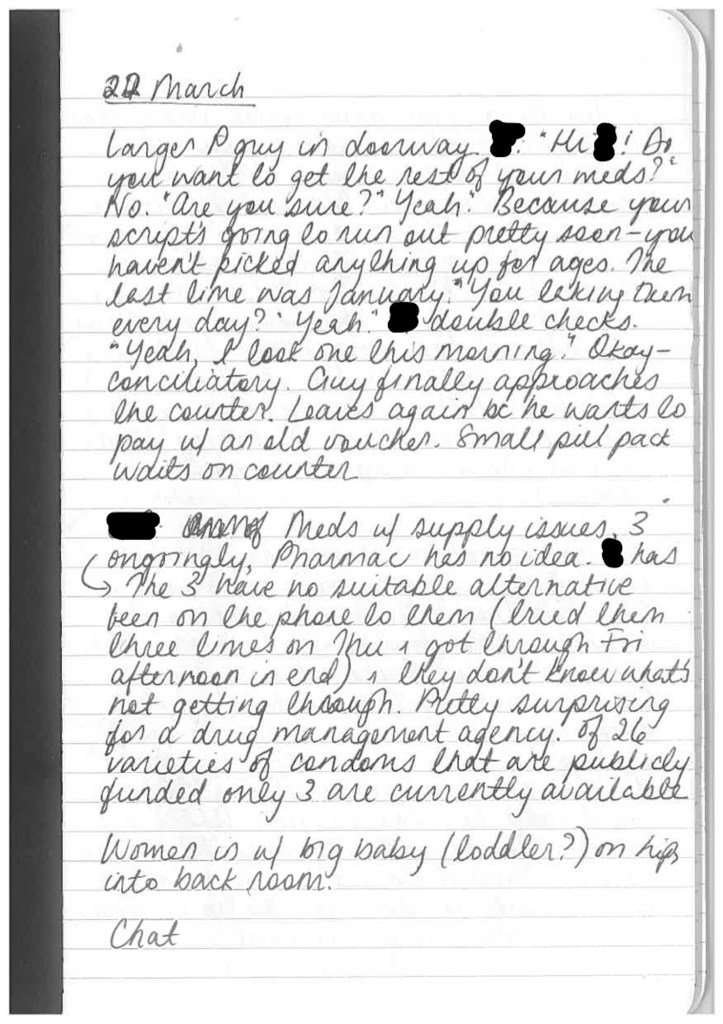 22 March
Larger P guy in doorway. : "Hi ! Do
you want to get the rest of your meds?"
No. "Are you sure?" "Yeah." Because your
script's going to run out pretty soon – you
haven't picked anything up for ages. The
last time was January." "You taking them
every day?" "Yeah." double checks.
"Yeah, I took one this morning." Okay –
conciliatory. Guy finally approaches
the counter. Leaves again bc he wants to
pay w/ an old voucher. Small pill pack
waits on counter
Meds w/ supply issues, 3
ongoingly, Pharmac has no idea. has
The 3 have no suitable alternative
been on the phone to them (tried them
three times on Thu & got through Fri
afternoon in end) & they don't know what's
not getting through. Pretty surprising
for a drug management agency. Of 26
varieties of condoms that are publicly
funded only 3 are currently available
Women is w/ big baby (toddler?) on hip,
into back room.
Chat